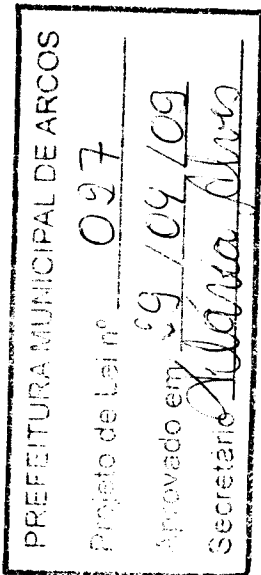 PREFEITURA MUNICIPAL DE ARCOS
Projeto de Lei nº 027
Aprovado em 29/04/09
Secretário Flávia Alves